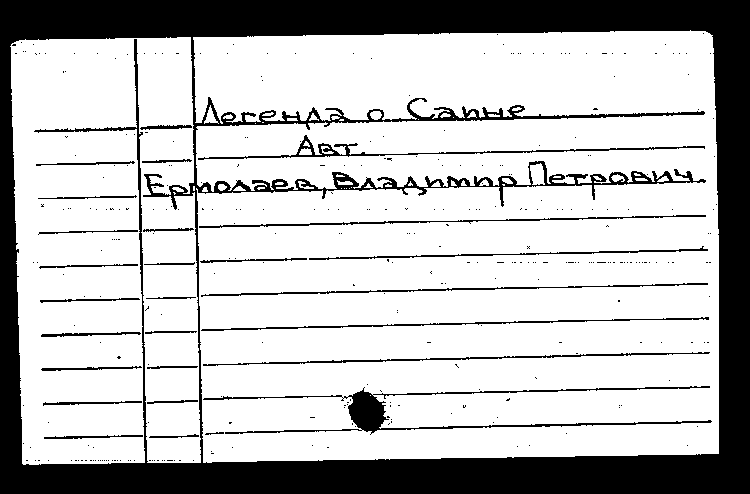 Легенда о Сапые.
Авт.
Ермолаев, Владимир Петрович.